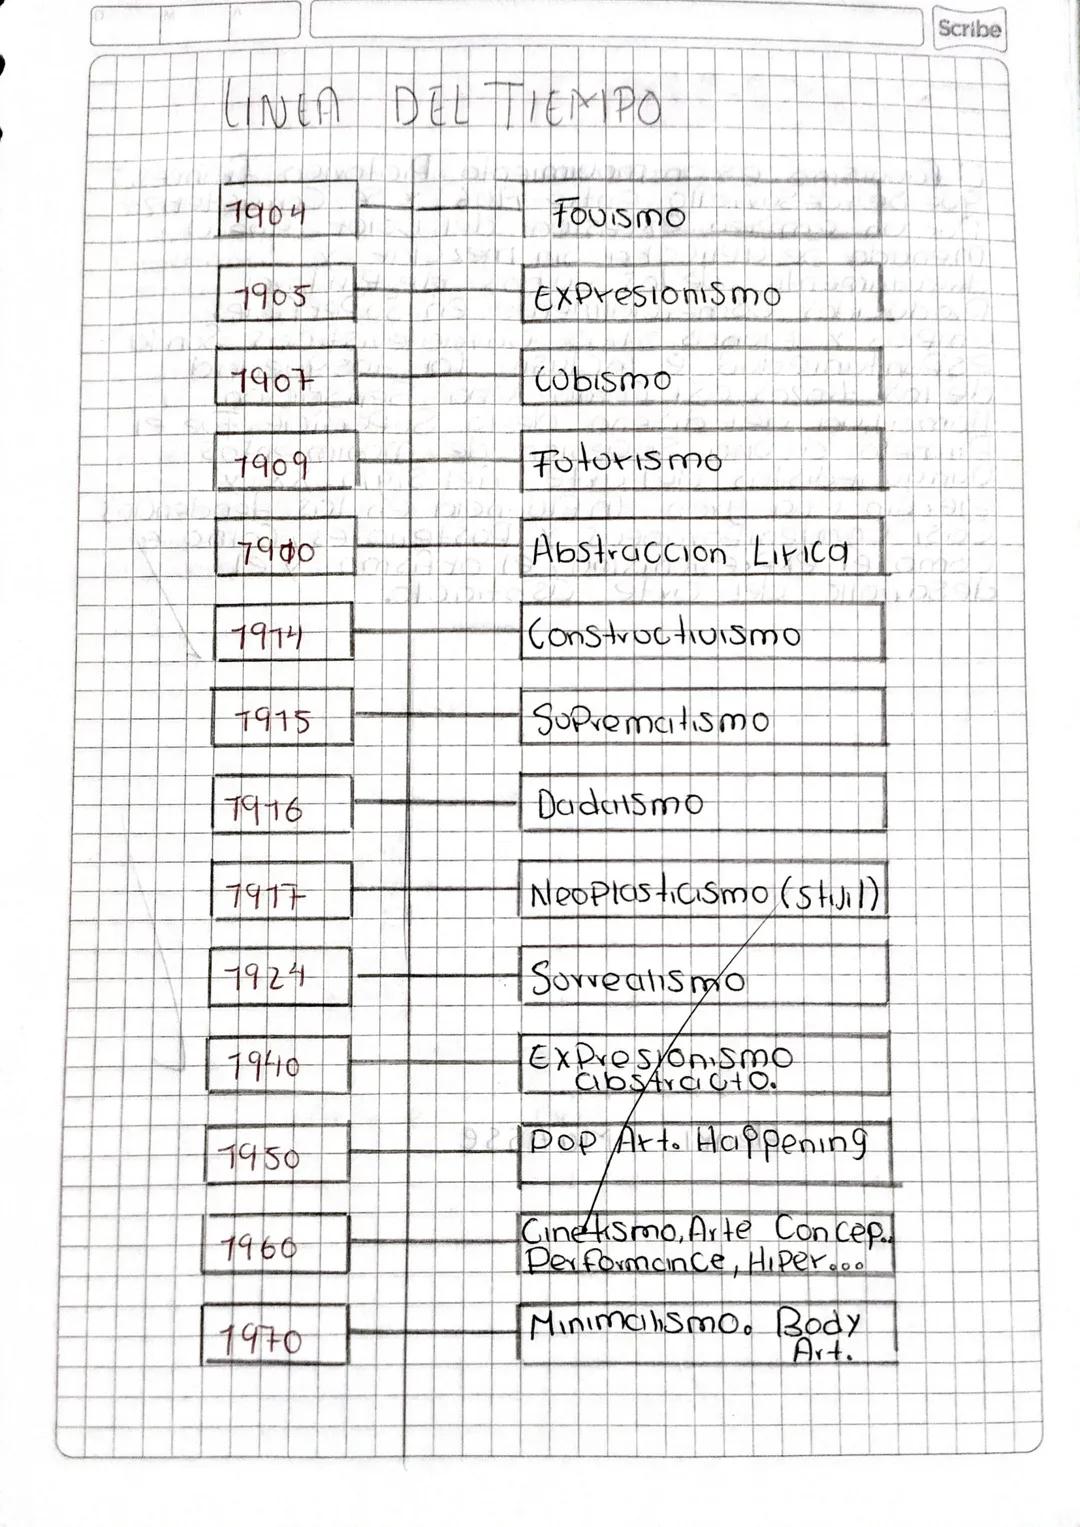 D M A
Scribe
LINEA DEL TIEMPO
1904 Fouismo
1905 Expresionismo
1907 Cubismo
1909 Futurismo
1910 Abstraccion Lirica
1914 Constructivismo
1915 Suprematismo
1916 Dadaismo
1917 Neoplasticismo (Stijil)
1924 Surrealismo
1940 Expresionismo
abstracto.
1950 Pop Art. Happening
1960 Cinetismo, Arte Concep..
Performance, Hiper...
1970 Minimalismo. Body
Art.